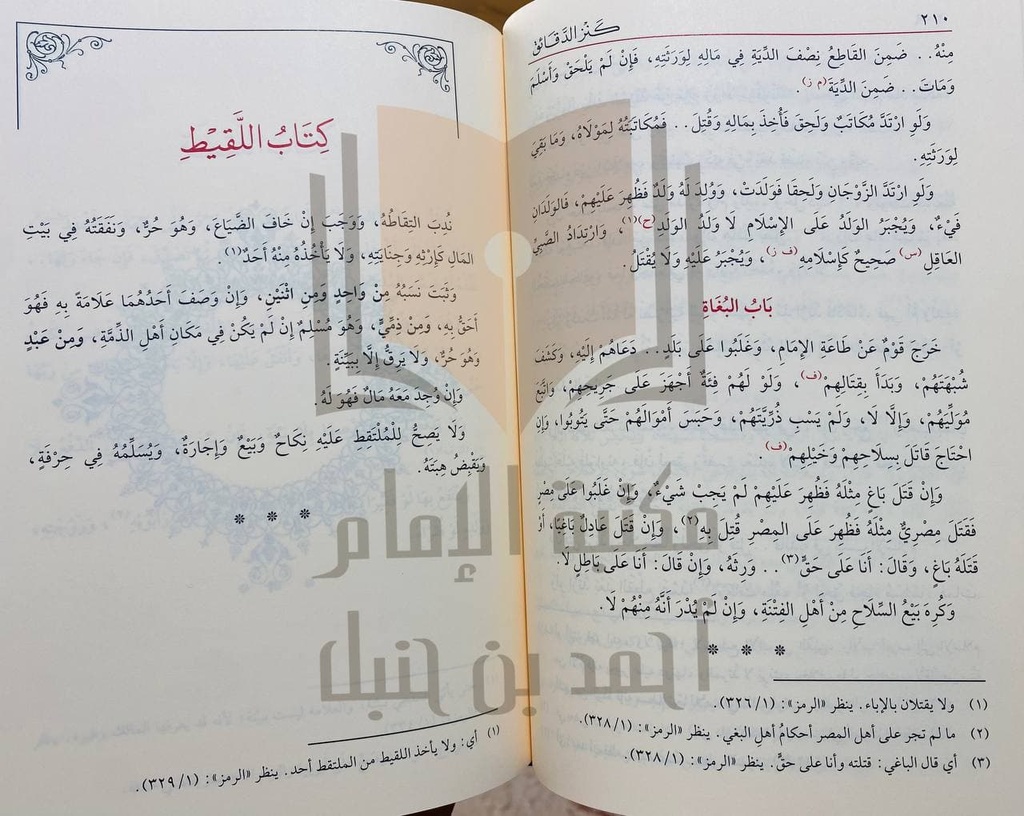 ٢١٠
كَنْزُ الدَّقَائِق
مِنْهُ.. ضَمِنَ القَاطِعُ نِصْفَ الدِّيَةِ فِي مَالِهِ لِوَرَثَتِهِ، فَإِنْ لَمْ يَلْحَقْ وَأَسْلَمَ
وَمَاتَ.. ضَمِنَ الدِّيَةَ(م ز).
وَلَوِ ارْتَدَّ مُكَاتَبٌ وَلَحِقَ فَأُخِذَ بِمَالِهِ وَقُتِلَ.. فَمُكَاتَبَتُهُ لِمَوْلَاهُ، وَمَا بَقِيَ
لِوَرَثَتِهِ.
وَلَوِ ارْتَدَّ الزَّوْجَانِ وَلَحِقَا فَوَلَدَتْ، وَوُلِدَ لَهُ وَلَدٌ فَظُهِرَ عَلَيْهِمْ، فَالوَلَدَانِ
فَيْءٌ، وَيُجْبَرُ الوَلَدُ عَلَى الإِسْلَامِ لَا وَلَدُ الوَلَدِ(ح)(١)، وَارْتِدَادُ الصَّبِيِّ
العَاقِلِ(س) صَحِيحٌ كَإِسْلَامِهِ(ف ز)، وَيُجْبَرُ عَلَيْهِ وَلَا يُقْتَلُ.
بَابُ البُغَاةِ
خَرَجَ قَوْمٌ عَنْ طَاعَةِ الإِمَامِ، وَغَلَبُوا عَلَى بَلَدٍ.. دَعَاهُمْ إِلَيْهِ، وَكَشَفَ
شُبْهَتَهُمْ، وَبَدَأَ بِقِتَالِهِمْ(ف)، وَلَوْ لَهُمْ فِئَةٌ أَجْهَزَ عَلَى جَرِيحِهِمْ، وَاتَّبَعَ
مُوَلِّيَهُمْ، وَإِلَّا لَا، وَلَمْ يَسْبِ ذُرِّيَّتَهُمْ، وَحَبَسَ أَمْوَالَهُمْ حَتَّى يَتُوبُوا، وَإِنِ
احْتَاجَ قَاتَلَ بِسِلَاحِهِمْ وَخَيْلِهِمْ(ف)
وَإِنْ قَتَلَ بَاغٍ مِثْلَهُ فَظُهِرَ عَلَيْهِمْ لَمْ يَجِبْ شَيْءٌ، وَإِنْ غَلَبُوا عَلَى مِصْرٍ
فَقَتَلَ مِصْرِيٌّ مِثْلَهُ فَظُهِرَ عَلَى المِصْرِ قُتِلَ بِهِ(٢)، وَإِنْ قَتَلَ عَادِلٌ بَاغِيًا، أَوْ
قَتَلَهُ بَاغٍ، وَقَالَ: أَنَا عَلَى حَقٍّ(٣).. وَرِثَهُ، وَإِنْ قَالَ: أَنَا عَلَى بَاطِلٍ لَا.
وَكُرِهَ بَيْعُ السِّلَاحِ مِنْ أَهْلِ الفِتْنَةِ، وَإِنْ لَمْ يُدْرَ أَنَّهُ مِنْهُمْ لَا.
* * *
(١) ولا يقتلان بالإباء. ينظر «الرمز»: (٣٢٦/١).
(٢) ما لم تجر على أهل المصر أحكامُ أهلِ البغي. ينظر «الرمز»: (٣٢٨/١).
(٣) أي قال الباغي: قتلته وأنا على حقٍّ. ينظر «الرمز»: (٣٢٨/١).
كِتَابُ اللَّقِيْطِ
نُدِبَ التِقَاطُهُ، وَوَجَبَ إِنْ خَافَ الضَّيَاعَ، وَهُوَ حُرٌّ، وَنَفَقَتُهُ فِي بَيْتِ
المَالِ كَإِرْثِهِ وَجِنَايَتِهِ، وَلَا يَأْخُذُهُ مِنْهُ أَحَدٌ(١).
وَثَبَتَ نَسَبُهُ مِنْ وَاحِدٍ وَمِنِ اثْنَيْنِ، وَإِنْ وَصَفَ أَحَدُهُمَا عَلَامَةً بِهِ فَهُوَ
أَحَقُّ بِهِ، وَمِنْ ذِمِّيٍّ، وَهُوَ مُسْلِمٌ إِنْ لَمْ يَكُنْ فِي مَكَانِ أَهْلِ الذِّمَّةِ، وَمِنْ عَبْدٍ
وَهُوَ حُرٌّ، وَلَا يَرِقُّ إِلَّا بِبَيِّنَةٍ.
وَإِنْ وُجِدَ مَعَهُ مَالٌ فَهُوَ لَهُ.
وَلَا يَصِحُّ لِلْمُلْتَقِطِ عَلَيْهِ نِكَاحٌ وَبَيْعٌ وَإِجَارَةٌ، وَيُسَلِّمُهُ فِي حِرْفَةٍ،
وَيَقْبِضُ هِبَتَهُ.
* * *
(١) أي: ولا يأخذ اللقيط من الملتقط أحد. ينظر «الرمز»: (٣٢٩/١).
مكتبة الإمام
أحمد بن حنبل